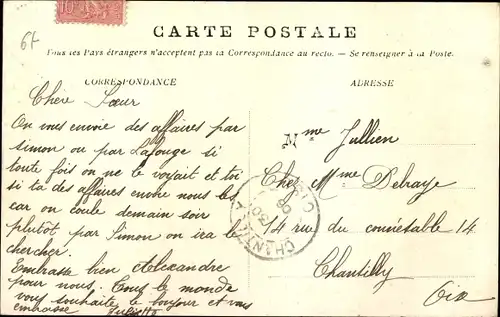 6f
CARTE POSTALE
Tous les Pays étrangers n'acceptent pas la Correspondance au recto. — Se renseigner à la Poste.
CORRESPONDANCE
ADRESSE
Chère Sœur
On vous envoie des affaires par
Simon ou par Lafouge si
toute fois on ne le voyait et toi
si ta des affaires envoie nous les
car on coule demain soir
plutôt par Simon on ira le
chercher.
Embrasse bien Alexandre
pour nous. Tous le monde
vous souhaite le bonjour et vous
embrasse Juliette
Mme Jullien
Chez Mme Delraye
14 rue du connétable 14
Chantilly
Oise
CHANTILLY
OISE